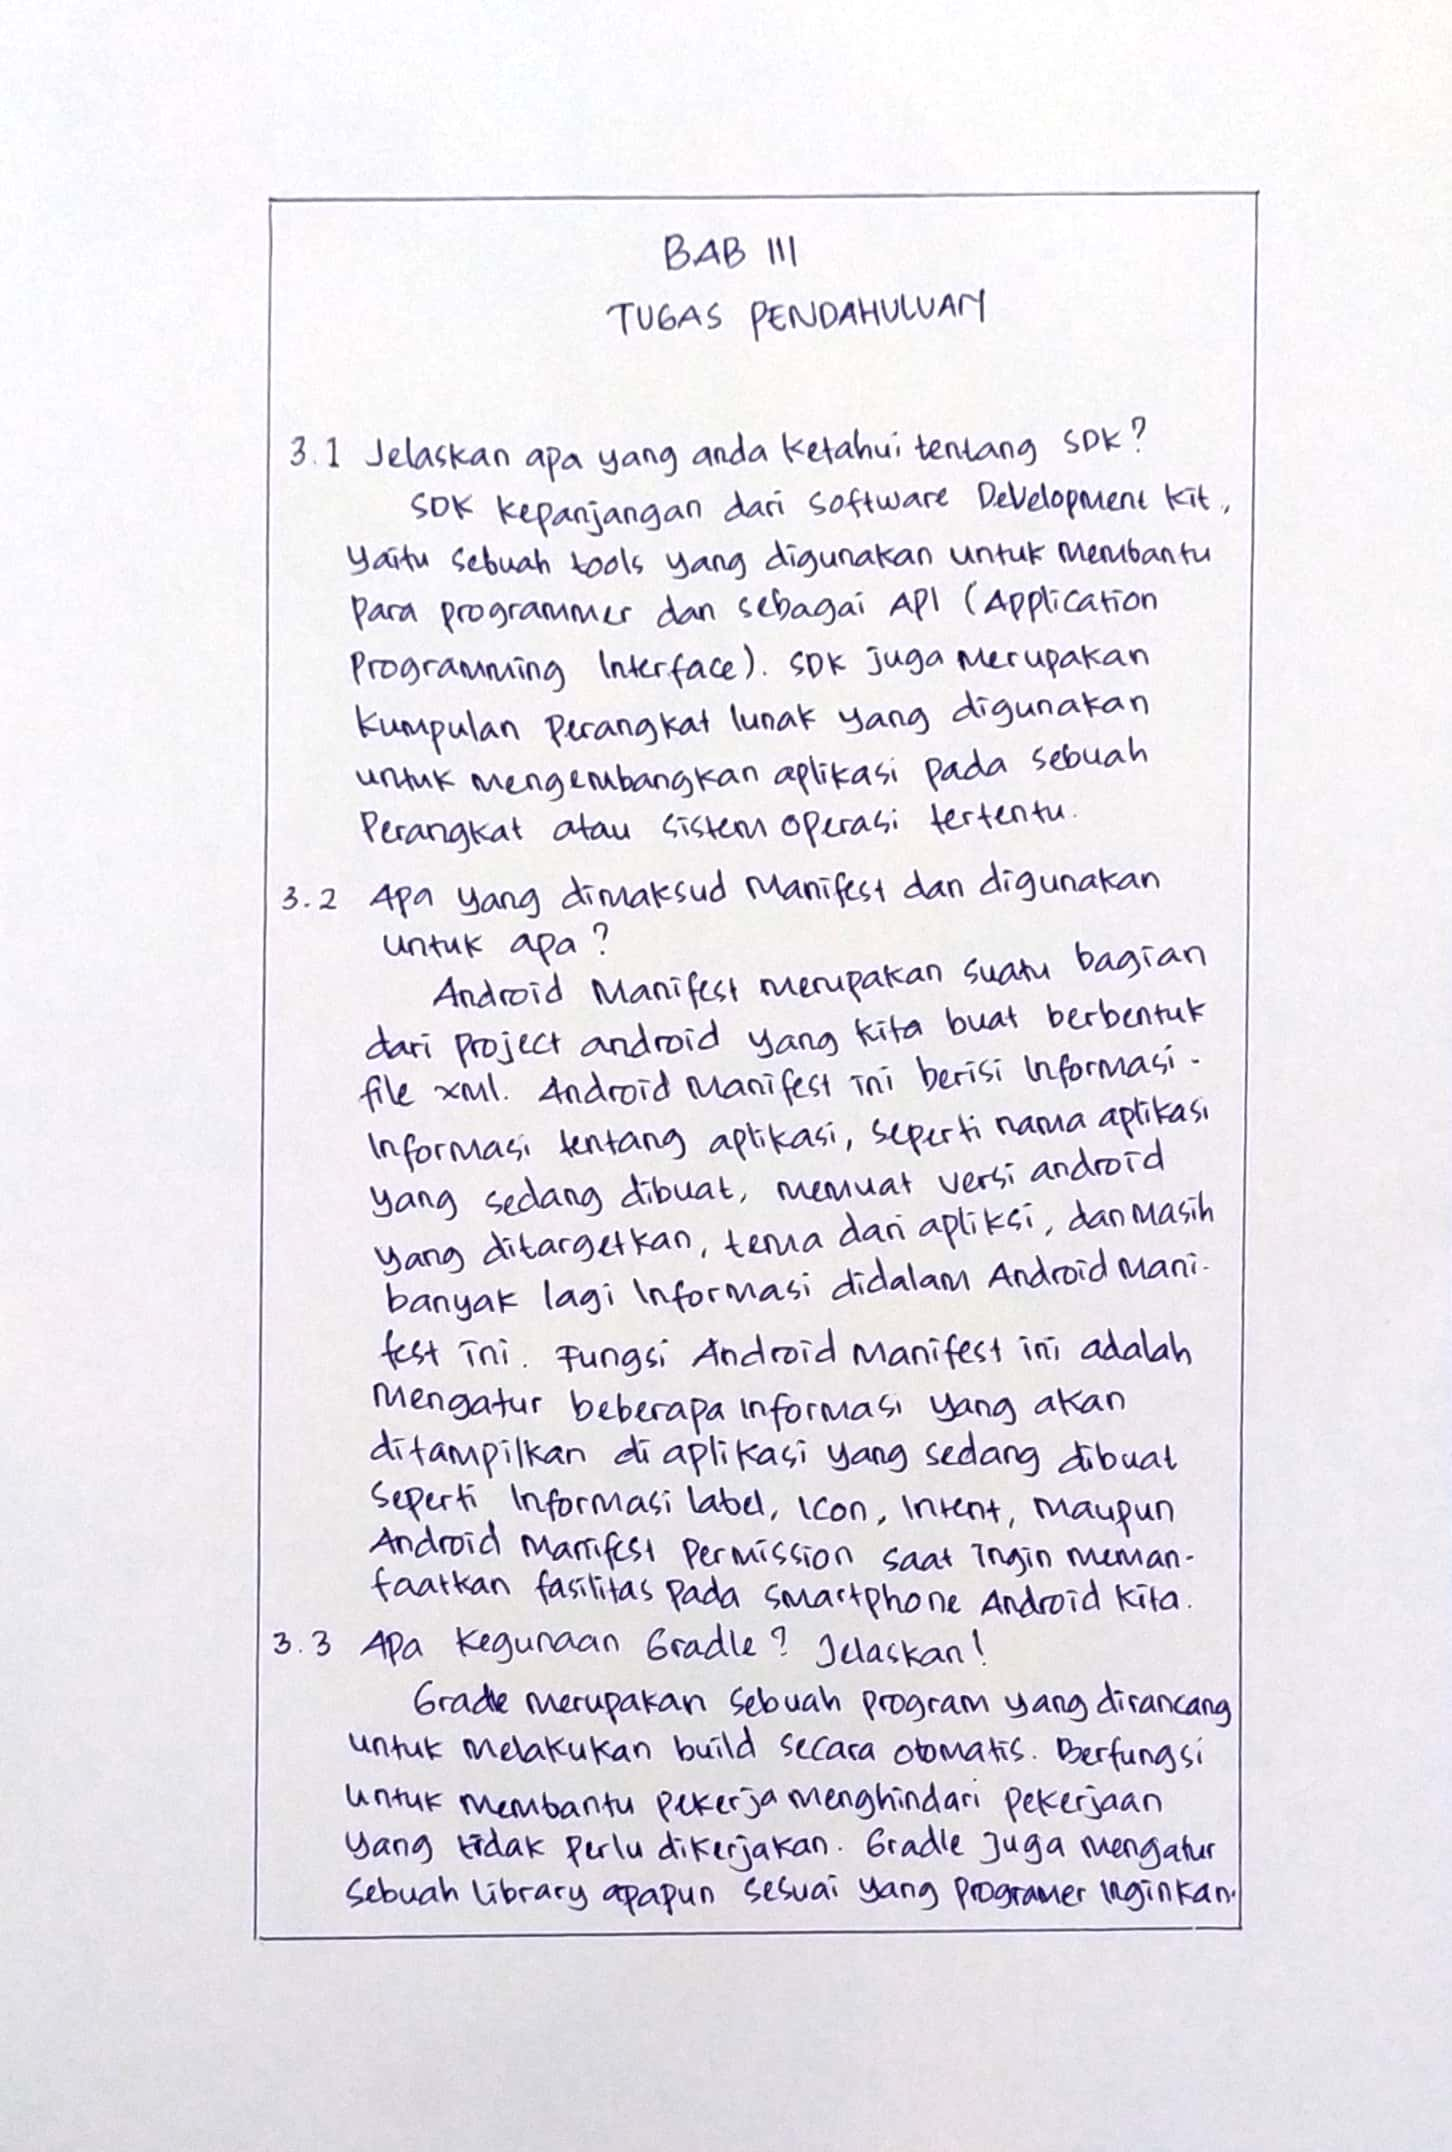 BAB III
TUGAS PENDAHULUAN
3.1 Jelaskan apa yang anda ketahui tentang SDK?
SDK kepanjangan dari Software Development Kit,
yaitu sebuah tools yang digunakan untuk membantu
para programmer dan sebagai API (Application
Programming Interface). SDK juga merupakan
kumpulan perangkat lunak yang digunakan
untuk mengembangkan aplikasi pada sebuah
perangkat atau sistem operasi tertentu.
3.2 Apa yang dimaksud Manifest dan digunakan
untuk apa?
Android Manifest merupakan suatu bagian
dari project android yang kita buat berbentuk
file xml. Android Manifest ini berisi Informasi-
Informasi tentang aplikasi, seperti nama aplikasi
yang sedang dibuat, memuat versi android
yang ditargetkan, tema dari apliksi, dan masih
banyak lagi Informasi didalam Android Mani-
fest ini. Fungsi Android Manifest ini adalah
mengatur beberapa informasi yang akan
ditampilkan di aplikasi yang sedang dibuat
seperti Informasi label, icon, Intent, maupun
Android Manifest Permission saat ingin meman-
faatkan fasilitas pada smartphone Android kita.
3.3 Apa kegunaan Gradle? Jelaskan!
Gradle merupakan sebuah program yang dirancang
untuk melakukan build secara otomatis. Berfungsi
untuk membantu pekerja menghindari pekerjaan
yang tidak perlu dikerjakan. Gradle juga mengatur
sebuah library apapun sesuai yang programer inginkan.